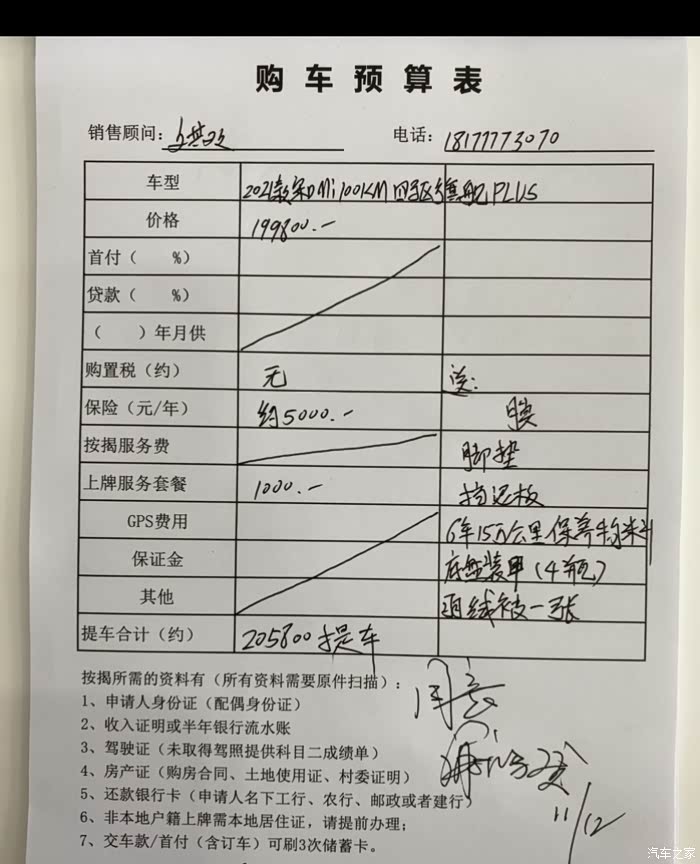 购车预算表
销售顾问： 电话：18177773070
车型 2021款宋DMi100KM四驱旗舰PLUS
价格 199800.-
首付（ %）
贷款（ %）
（ ）年月供
购置税（约） 无 送：
保险（元/年） 约5000.- 膜
按揭服务费 脚垫
上牌服务套餐 1000.- 挡泥板
GPS费用 6年15万公里保养
保证金 底盘装甲（4瓶）
其他 羽绒被一张
提车合计（约） 205800提车
按揭所需的资料有（所有资料需要原件扫描）：
1、申请人身份证（配偶身份证）
2、收入证明或半年银行流水账
3、驾驶证（未取得驾照提供科目二成绩单）
4、房产证（购房合同、土地使用证、村委证明）
5、还款银行卡（申请人名下工行、农行、邮政或者建行）
6、非本地户籍上牌需本地居住证，请提前办理；
7、交车款/首付（含订车）可刷3次储蓄卡。
同意
11/12
汽车之家